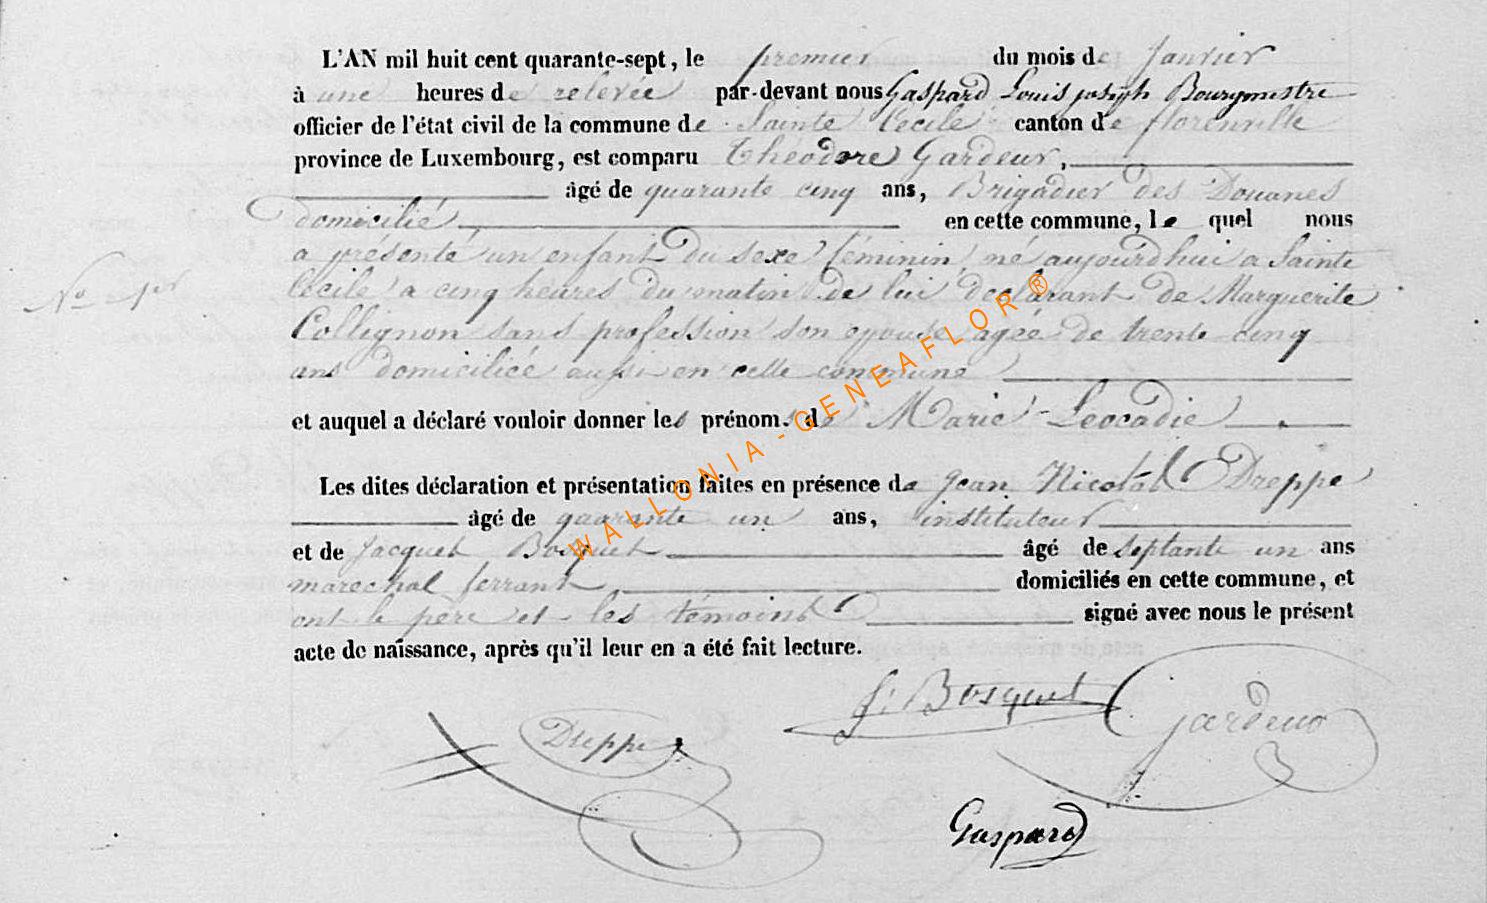 L'AN mil huit cent quarante-sept, le premier du mois de Janvier
à une heures de relevée par-devant nous Gaspard Louis joseph Bourgmestre
officier de l'état civil de la commune de Sainte Cecile canton de florenville
province de Luxembourg, est comparu Théodore Gardeur,
âgé de quarante cinq ans, Brigadier des Douanes
domicilié en cette commune, le quel nous
a présenté un enfant du sexe féminin, né aujourd'hui a Sainte
Cecile a cinq heures du matin de lui déclarant de Marguerite
Collignon sans profession son epouse agée de trente cinq
ans domiciliée aussi en cette commune
et auquel a déclaré vouloir donner les prénoms de Marie-Leocadie
Les dites déclaration et présentation faites en présence de Jean Nicolas Dreppe
âgé de quarante un ans, instituteur
et de Jacques Bosquet âgé de septante un ans
marechal ferrant domiciliés en cette commune, et
ont le père et les témoins signé avec nous le présent
acte de naissance, après qu'il leur en a été fait lecture.
No 1er
J: Bosquet
Gardeur
Dreppe
Gaspard
WALLONIA-GENEAFLOR®